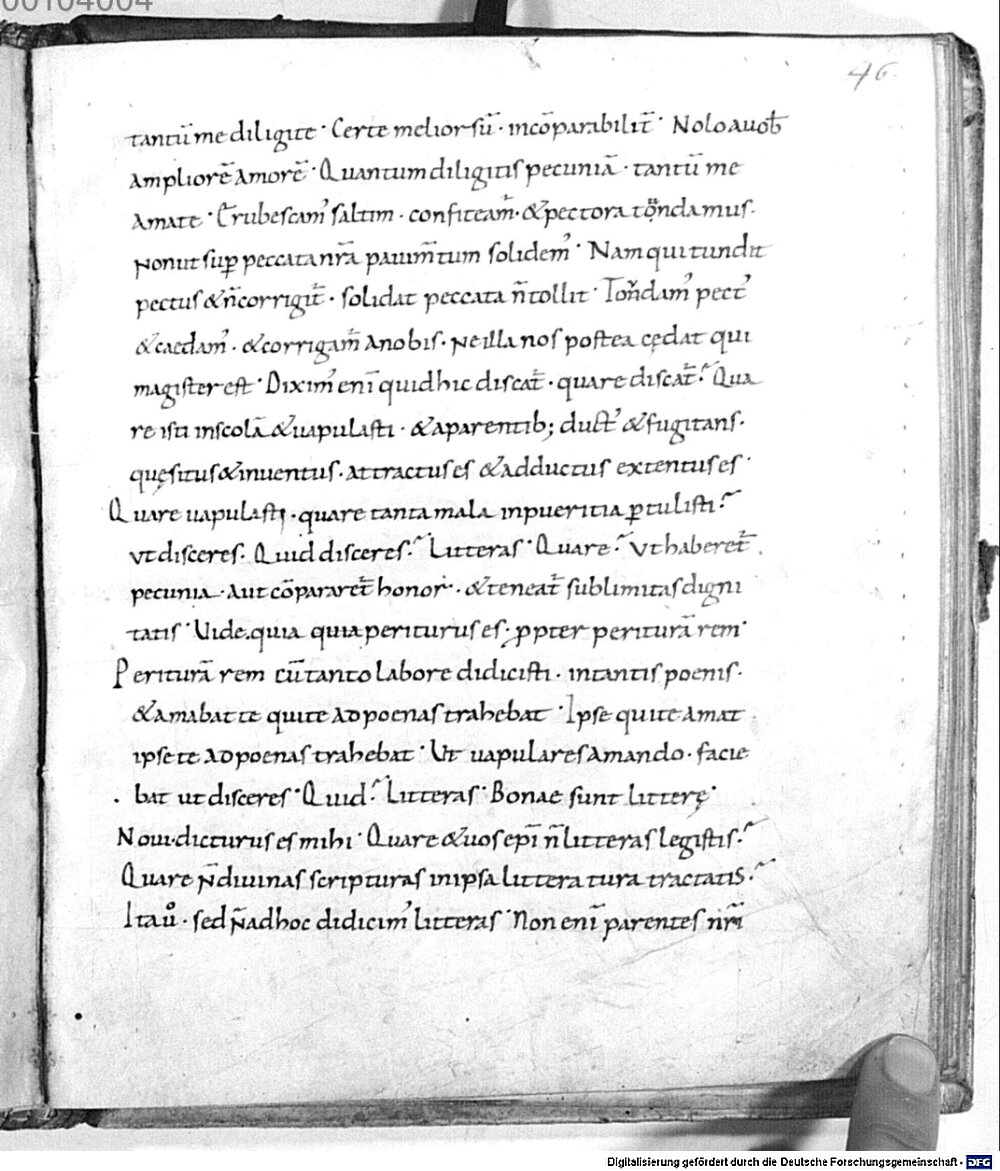 00104004
46.
tantū me diligite · Certe melior sū · incōparabilit̄ · Nolo a uob̄
ampliorē amorē · Quantum diligitis pecuniā · tantū me
amate · Erubescam᾽ saltim · confiteam᷑ · & pectora tondamus ·
Non ut sup̱ peccata nr̄a pauim̄tum solidem᾽ · Nam qui tundit
pectus & n̄ corrigit᷑ · solidat peccata n̄ tollit · Tondam᾽ pect᾽
& caedam᾽ · & corrigam᷑ a nobis · Ne illa nos postea cędat qui
magister est · Dixim᾽ enī quid hic discat᷑ · quare discat᷑ ? Qua
re isti in scolā & uapulasti · & a parentib; duct᾽ & fugitans ·
quęsitus & inuentus · attractus es & adductus extentus es ·
Quare uapulasti · quare tanta mala in pueritia ꝑtulisti ?
Vt disceres · Quid disceres ? Litteras · Quare ? Vt haberet᷑ ·
pecunia · Aut cōpararet᷑ honor · & teneat᷑ sublimitas digni
tatis · Uide · quia quia periturus es · ꝓpter periturā rem ·
Periturā rem cū tanto labore didicisti · in tantis poenis ·
& amabat te qui te ad poenas trahebat · Ipse qui te amat
ipse te ad poenas trahebat · Ut uapulares amando · facie
bat ut disceres · Quid ? Litteras · Bonae sunt litterę ·
Noui · dicturus es mihi · Quare & uos ep̄i n̄ litteras legistis ?
Quare N̄ diuinas scripturas in ipsa litteratura tractatis ?
Ita uº · sed N̄ ad hoc didicim᾽ litteras · Non enī parentes nr̄i
Digitalisierung gefördert durch die Deutsche Forschungsgemeinschaft - DFG